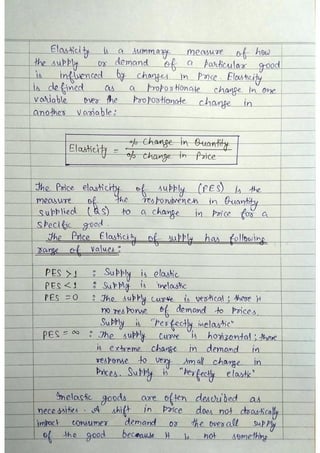 Elasticity is a summary measure of how
the supply or demand of a particular good
is influenced by changes in Price. Elasticity
is defined as a Proportionate change in one
variable over the Proportionate change in
another variable:
Elasticity = % Change in Quantity
% change in Price
The Price elasticity of supply (PES) is the
measure of the responsiveness in Quantity
Supplied (QS) to a change in Price for a
Specific good.
The Price Elasticity of supply has following
range of values:
PES > 1 : Supply is elastic
PES < 1 : Supply is inelastic
PES = 0 : The supply curve is vertical; there is
no response of demand to Prices.
Supply is "Perfectly inelastic"
PES = ∞ : The supply curve is horizontal; there
is extreme change in demand in
response to very small change in
Prices. Supply is "Perfectly elastic"
Inelastic goods are often described as
necessities. A shift in Price does not drastically
impact consumer demand or the overall supply
of the good because it is not something